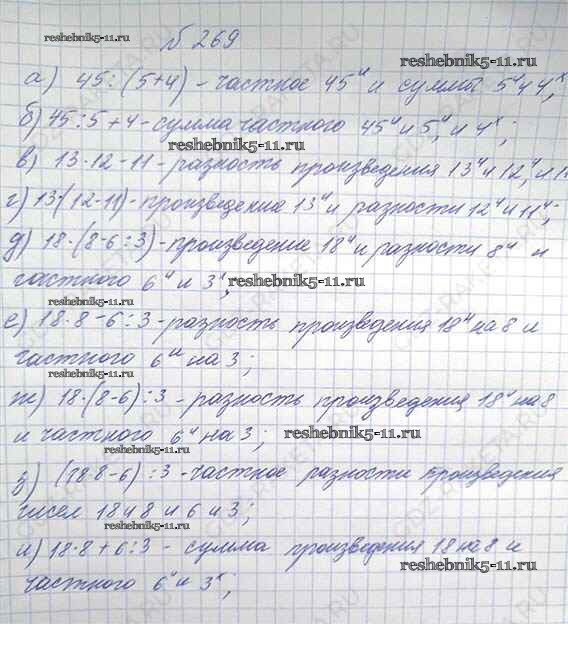 № 269
reshebnik5-11.ru
reshebnik5-11.ru
а) 45:(5+4) - частное 45и и суммы 5и 4х,
б) 45:5+4 - сумма частного 45и и 5, и 4х;
reshebnik5-11.ru
в) 13·12-11 - разность произведения 13и и 12, и
г) 13(12-11) - произведение 13и и разности 12и и 11и;
д) 18·(8-6:3) - произведение 18и и разности 8и и
частного 6и и 3х,
reshebnik5-11.ru
reshebnik5-11.ru
е) 18·8-6:3 - разность произведения 18и на 8 и
частного 6и на 3;
reshebnik5-11.ru
ж) 18·(8-6):3 - разность произведения 18и на 8
и частного 6и на 3;
reshebnik5-11.ru
з) (18 8-6):3 - частное разности произведения
чисел 18 и 8 и 6 и 3;
reshebnik5-11.ru
и) 18·8+6:3 - сумма произведения 18 на 8 и
reshebnik5-11.ru
частного 6и и 3х;